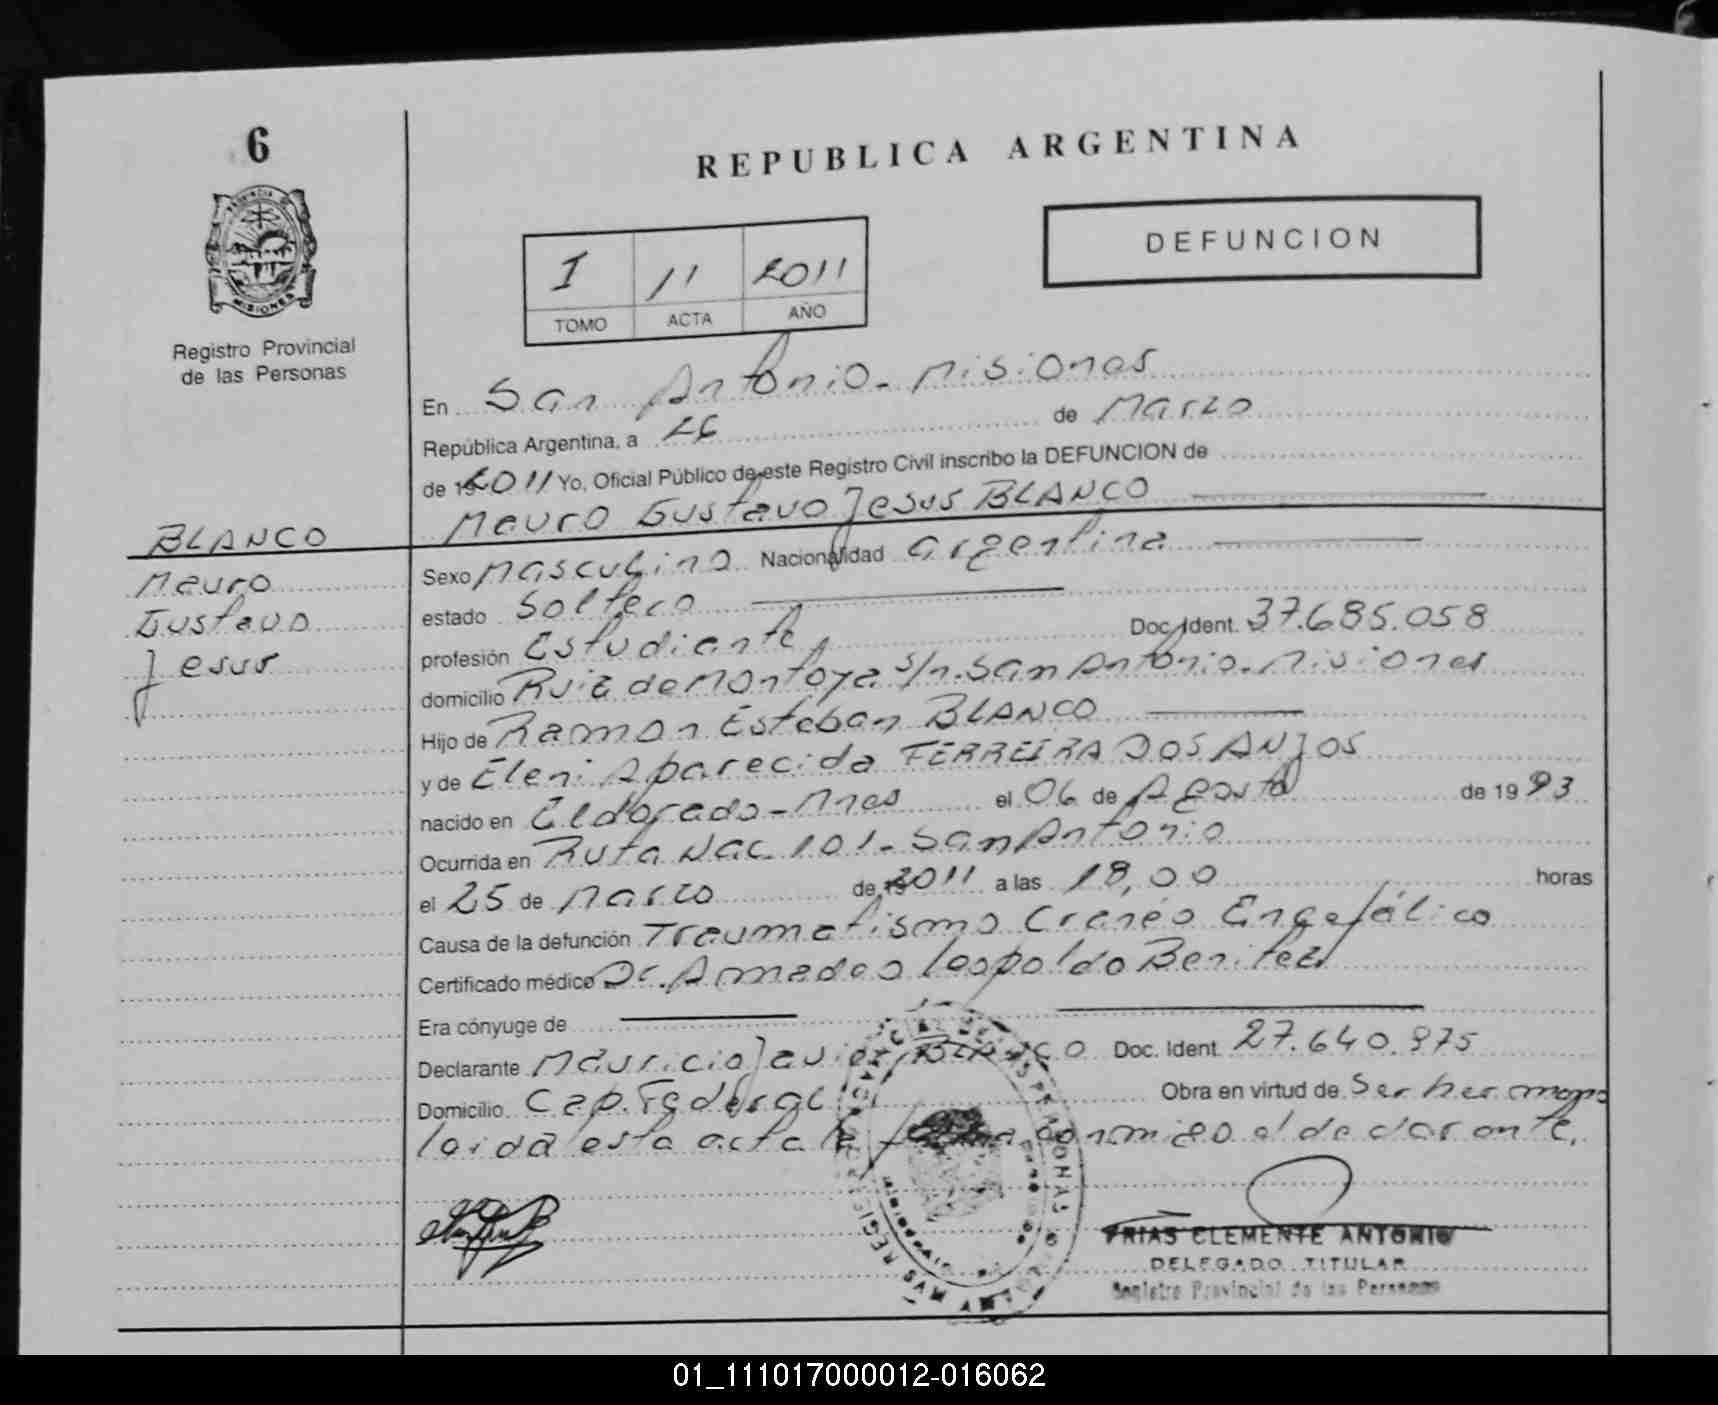 6
REPUBLICA ARGENTINA
DEFUNCION
I 11 2011
TOMO ACTA AÑO
PROVINCIA DE
MISIONES
Registro Provincial
de las Personas
En San Antonio - Misiones
República Argentina, a 26 de Marzo
de 19 2011 Yo, Oficial Público de este Registro Civil inscribo la DEFUNCION de
Mauro Gustavo Jesus BLANCO
BLANCO
Mauro
Gustavo
Jesus
Sexo Masculino Nacionalidad argentina
estado Soltero
profesión Estudiante Doc. Ident. 37.685.058
domicilio Ruiz de Montoya s/n. San Antonio - Misiones
Hijo de Ramon Esteban BLANCO
y de Eleni Aparecida FERREIRA DOS ANJOS
nacido en Eldorado - Mnes el 06 de Agosto de 19 93
Ocurrida en Ruta Nac. 101 - San Antonio
el 25 de Marzo de 19 2011 a las 18,00 horas
Causa de la defunción Traumatismo Craneo Encefálico
Certificado médico Dr. Amadeo Leopoldo Benitez
Era cónyuge de
Declarante Mauricio Javier BLANCO Doc. Ident. 27.640.975
Domicilio Cap. Federal Obra en virtud de Ser hermano
leida esta acta la firma conmigo el declarante.
FRIAS CLEMENTE ANTONIO
DELEGADO TITULAR
Registro Provincial de las Personas
01_111017000012-016062